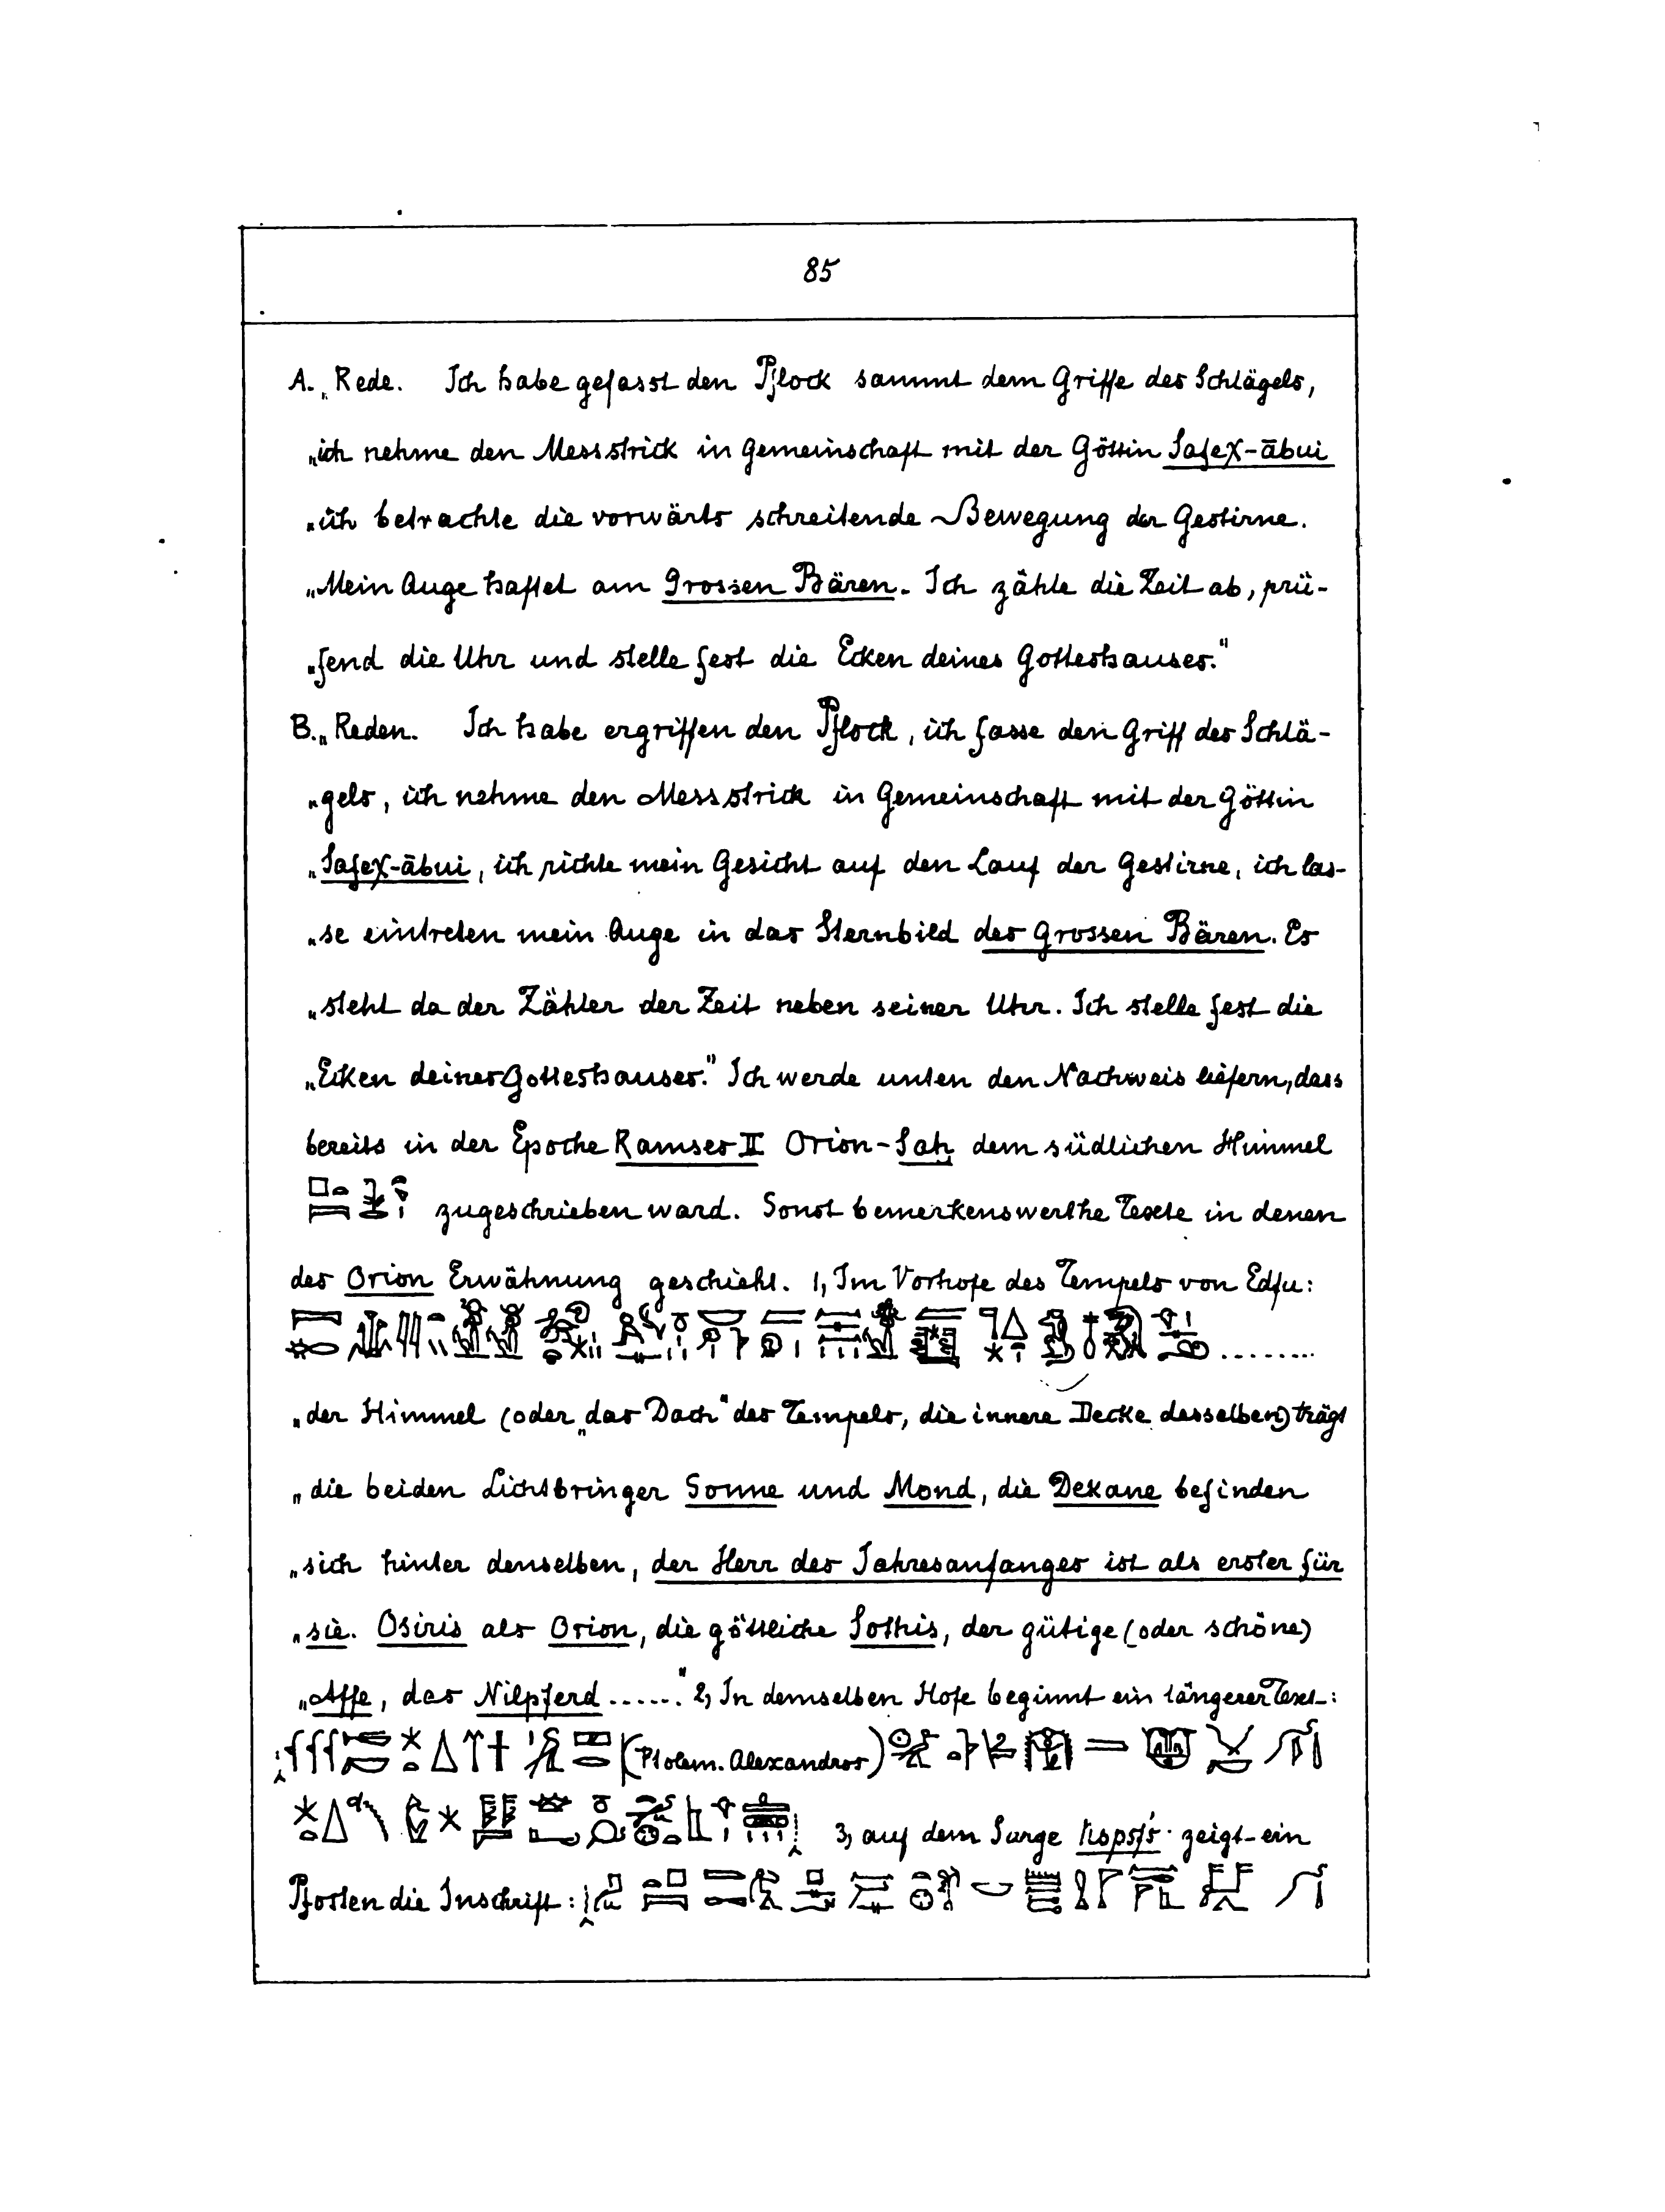 85
A. „Rede. Ich habe gefasst den Pflock sammt dem Griffe des Schlägels,
„ich nehme den Messstrick in Gemeinschaft mit der Göttin Safeχ-ābui
„ich betrachte die vorwärts schreitende Bewegung der Gestirne.
„Mein Auge haftet am Grossen Bären. Ich zähle die Zeit ab, prü-
„fend die Uhr und stelle fest die Ecken deines Gotteshauses."
B. „Reden. Ich habe ergriffen den Pflock, ich fasse den Griff des Schlä-
„gels, ich nehme den Messstrick in Gemeinschaft mit der Göttin
„Safeχ-ābui, ich richte mein Gesicht auf den Lauf der Gestirne, ich las-
„se eintreten mein Auge in das Sternbild des Grossen Bären. Es
„steht da der Zähler der Zeit neben seiner Uhr. Ich stelle fest die
„Ecken deines Gotteshauses." Ich werde unten den Nachweis liefern, dass
bereits in der Epoche Ramses II Orion-Saḥ dem südlichen Himmel
zugeschrieben ward. Sonst bemerkenswerthe Texte in denen
des Orion Erwähnung geschieht. 1, Im Vorhofe des Tempels von Edfu:
........
„der Himmel (oder „das Dach" des Tempels, die innere Decke desselben) trägt
„die beiden Lichtbringer Sonne und Mond, die Dekane befinden
„sich hinter denselben, der Herr des Jahresanfanges ist als erster für
„sie. Osiris als Orion, die göttliche Sothis, der gütige (oder schöne)
„Affe, das Nilpferd ......" 2, In demselben Hofe beginnt ein längerer Text:
(Ptolem. Alexandros)
3, auf dem Sarge zeigt ein
Pfosten die Inschrift: